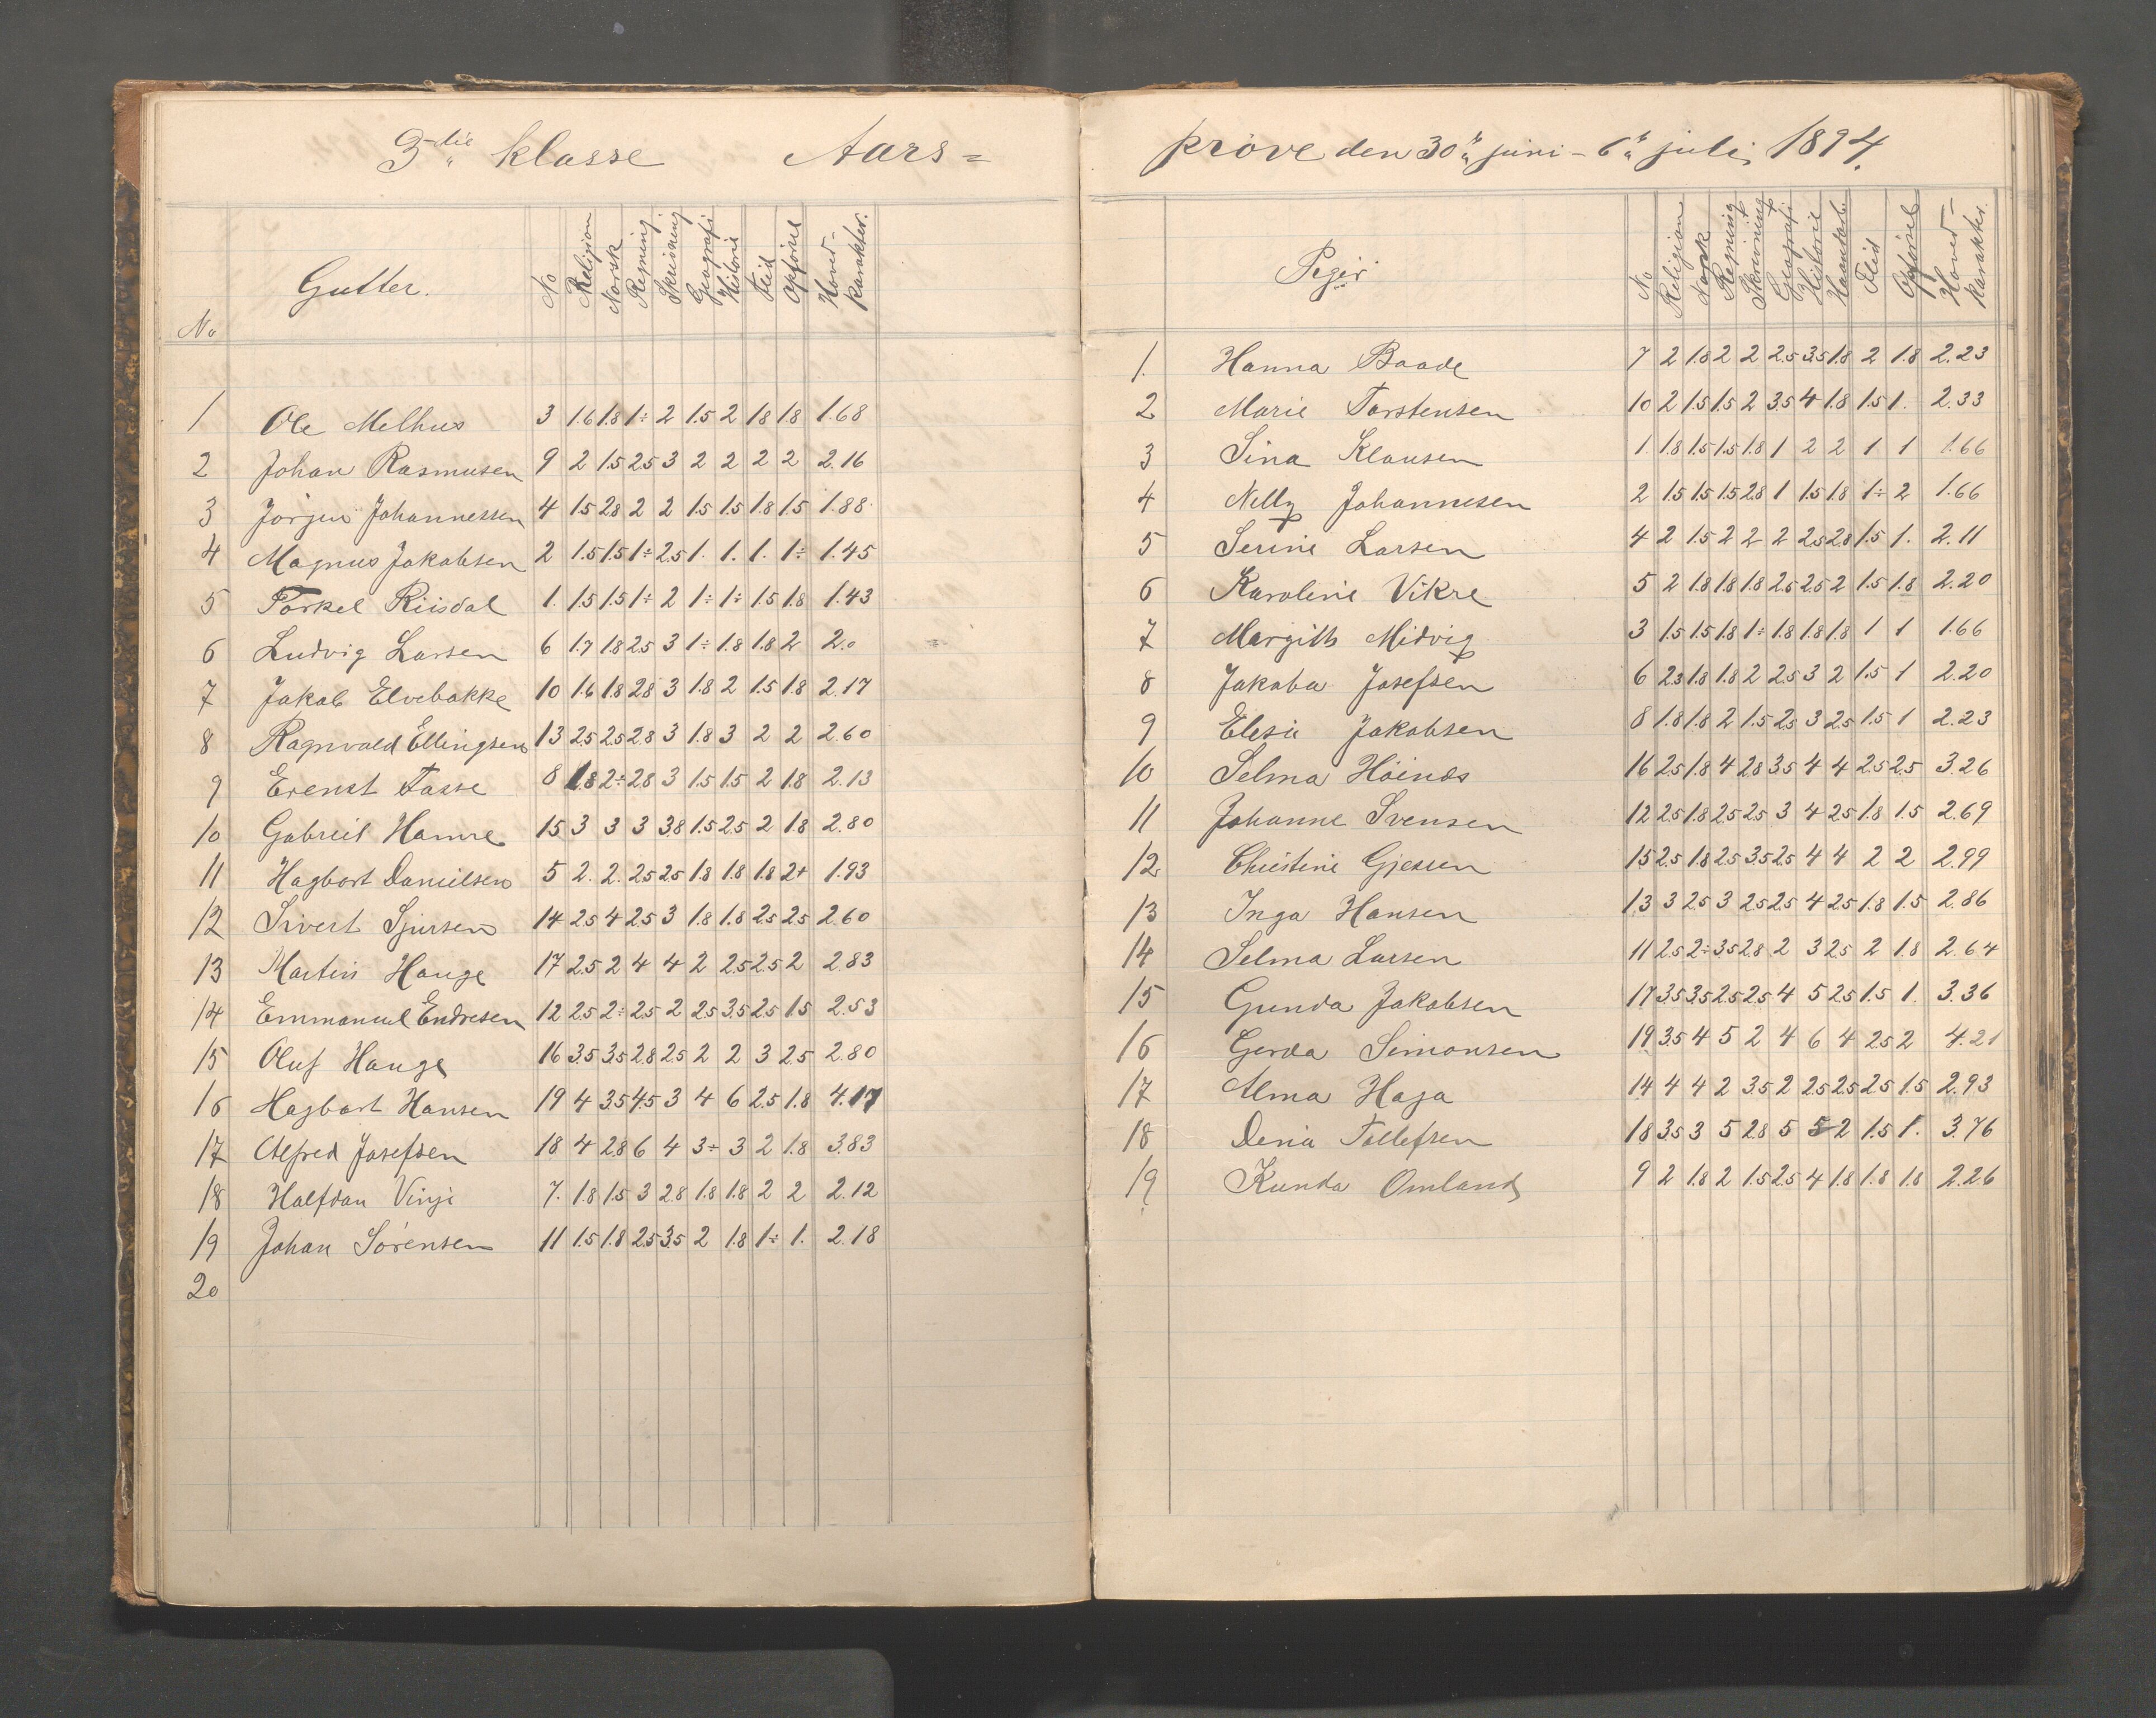 3die klasse Aars=
No Gutter. No Religion Norsk Regning Skrivning Geografi Historie Flid Opførsel Hoved-karakter.
1 Ole Melhus 3 1.6 1.8 1÷ 2 1.5 2 1.8 1.8 1.68
2 Johan Rasmusen 9 2 1.5 2.5 3 2 2 2 2 2.16
3 Jørgen Johannessen 4 1.5 2.8 2 2 1.5 1.5 1.8 1.5 1.88
4 Magnus Jakobsen 2 1.5 1.5 1÷ 2.5 1. 1. 1. 1÷ 1.45
5 Torkel Riisdal 1. 1.5 1.5 1÷ 2 1÷ 1÷ 1.5 1.8 1.43
6 Ludvig Larsen 6 1.7 1.8 2.5 3 1÷ 1.8 1.8 2 2.0
7 Jakob Elvebakke 10 1.6 1.8 2.8 3 1.8 2 1.5 1.8 2.17
8 Ragnvald Ellingsen 13 2.5 2.5 2.8 3 1.8 3 2 2 2.60
9 Erenst Tasse 8 1.8 2÷ 2.8 3 1.5 1.5 2 1.8 2.13
10 Gabriel Hamre 15 3 3 3 3.8 1.5 2.5 2 1.8 2.80
11 Hagbart Danielsen 5 2. 2. 2.5 2.5 1.8 1.8 1.8 2+ 1.93
12 Sivert Sjursen 14 2.5 4 2.5 3 1.8 1.8 2.5 2.5 2.60
13 Martin Hauge 17 2.5 2 4 4 2 2.5 2.5 2 2.83
14 Emmanuel Endresen 12 2.5 2÷ 2.5 2 2.5 3.5 2.5 1.5 2.53
15 Oluf Hauge 16 3.5 3.5 2.8 2.5 2 2 3 2.5 2.80
16 Hagbart Hansen 19 4 3.5 4.5 3 4 6 2.5 1.8 4.17
17 Alfred Josefsen 18 4 2.8 6 4 3÷ 3 2 1.8 3.83
18 Halfdan Vinje 7. 1.8 1.5 3 2.8 1.8 1.8 2 2 2.12
19 Johan Sørensen 11 1.5 1.8 2.5 3.5 2 1.8 1÷ 1. 2.18
20
prøve den 30te juni - 6te juli 1894.
Piger No Religion Norsk Regning Skrivning Geografi Historie Haandarb Flid Opførsel Hoved-karakter.
1. Hanna Baade 7 2 1.8 2 2 2.5 3.5 1.8 2 1.8 2.23
2 Marie Torstensen 10 2 1.5 1.5 2 3.5 4 1.8 1.5 1. 2.33
3 Sina Klausen 1. 1.8 1.5 1.5 1.8 1 2 2 1 1 1.66
4 Nelly Johannesen 2 1.5 1.5 1.5 2.8 1 1.5 1.8 1÷ 2 1.66
5 Serine Larsen 4 2 1.5 2 2 2 2.5 2.8 1.5 1. 2.11
6 Karoline Vikre 5 2 1.8 1.8 1.8 2.5 2.5 2 1.5 1.8 2.20
7 Margith Midvig 3 1.5 1.5 1.8 1÷ 1.8 1.8 1.8 1 1 1.66
8 Jakoba Josefsen 6 2.3 1.8 1.8 2 2.5 3 2 1.5 1 2.20
9 Elesie Jakobsen 8 1.8 1.8 2 1.5 2.5 3 2.5 1.5 1 2.23
10 Selma Höines 16 2.5 1.8 4 2.8 3.5 4 4 2.5 2.5 3.26
11 Johanne Svensen 12 2.5 1.8 2.5 2.5 3 4 2.5 1.8 1.5 2.69
12 Christine Gjessen 15 2.5 1.8 2.5 3.5 2.5 4 4 2 2 2.99
13 Inga Hansen 13 3 2.5 3 2.5 2.5 4 2.5 1.8 1.5 2.86
14 Selma Larsen 11 2.5 2÷ 3.5 2.8 2 3 2.5 2 1.8 2.64
15 Gunda Jakobsen 17 3.5 3.5 2.5 2.5 4 5 2.5 1.5 1. 3.36
16 Gerda Simonsen 19 3.5 4 5 2 4 6 4 2.5 2 4.21
17 Alma Haga 14 4 4 2 3.5 2 2.5 2.5 2.5 1.5 2.93
18 Denia Tollefsen 18 3.5 3 5 2.8 5 5 2 1.5 1. 3.76
19 Kunda Omland 9 2 1.8 2 1.5 2.5 4 1.8 1.8 1.8 2.26